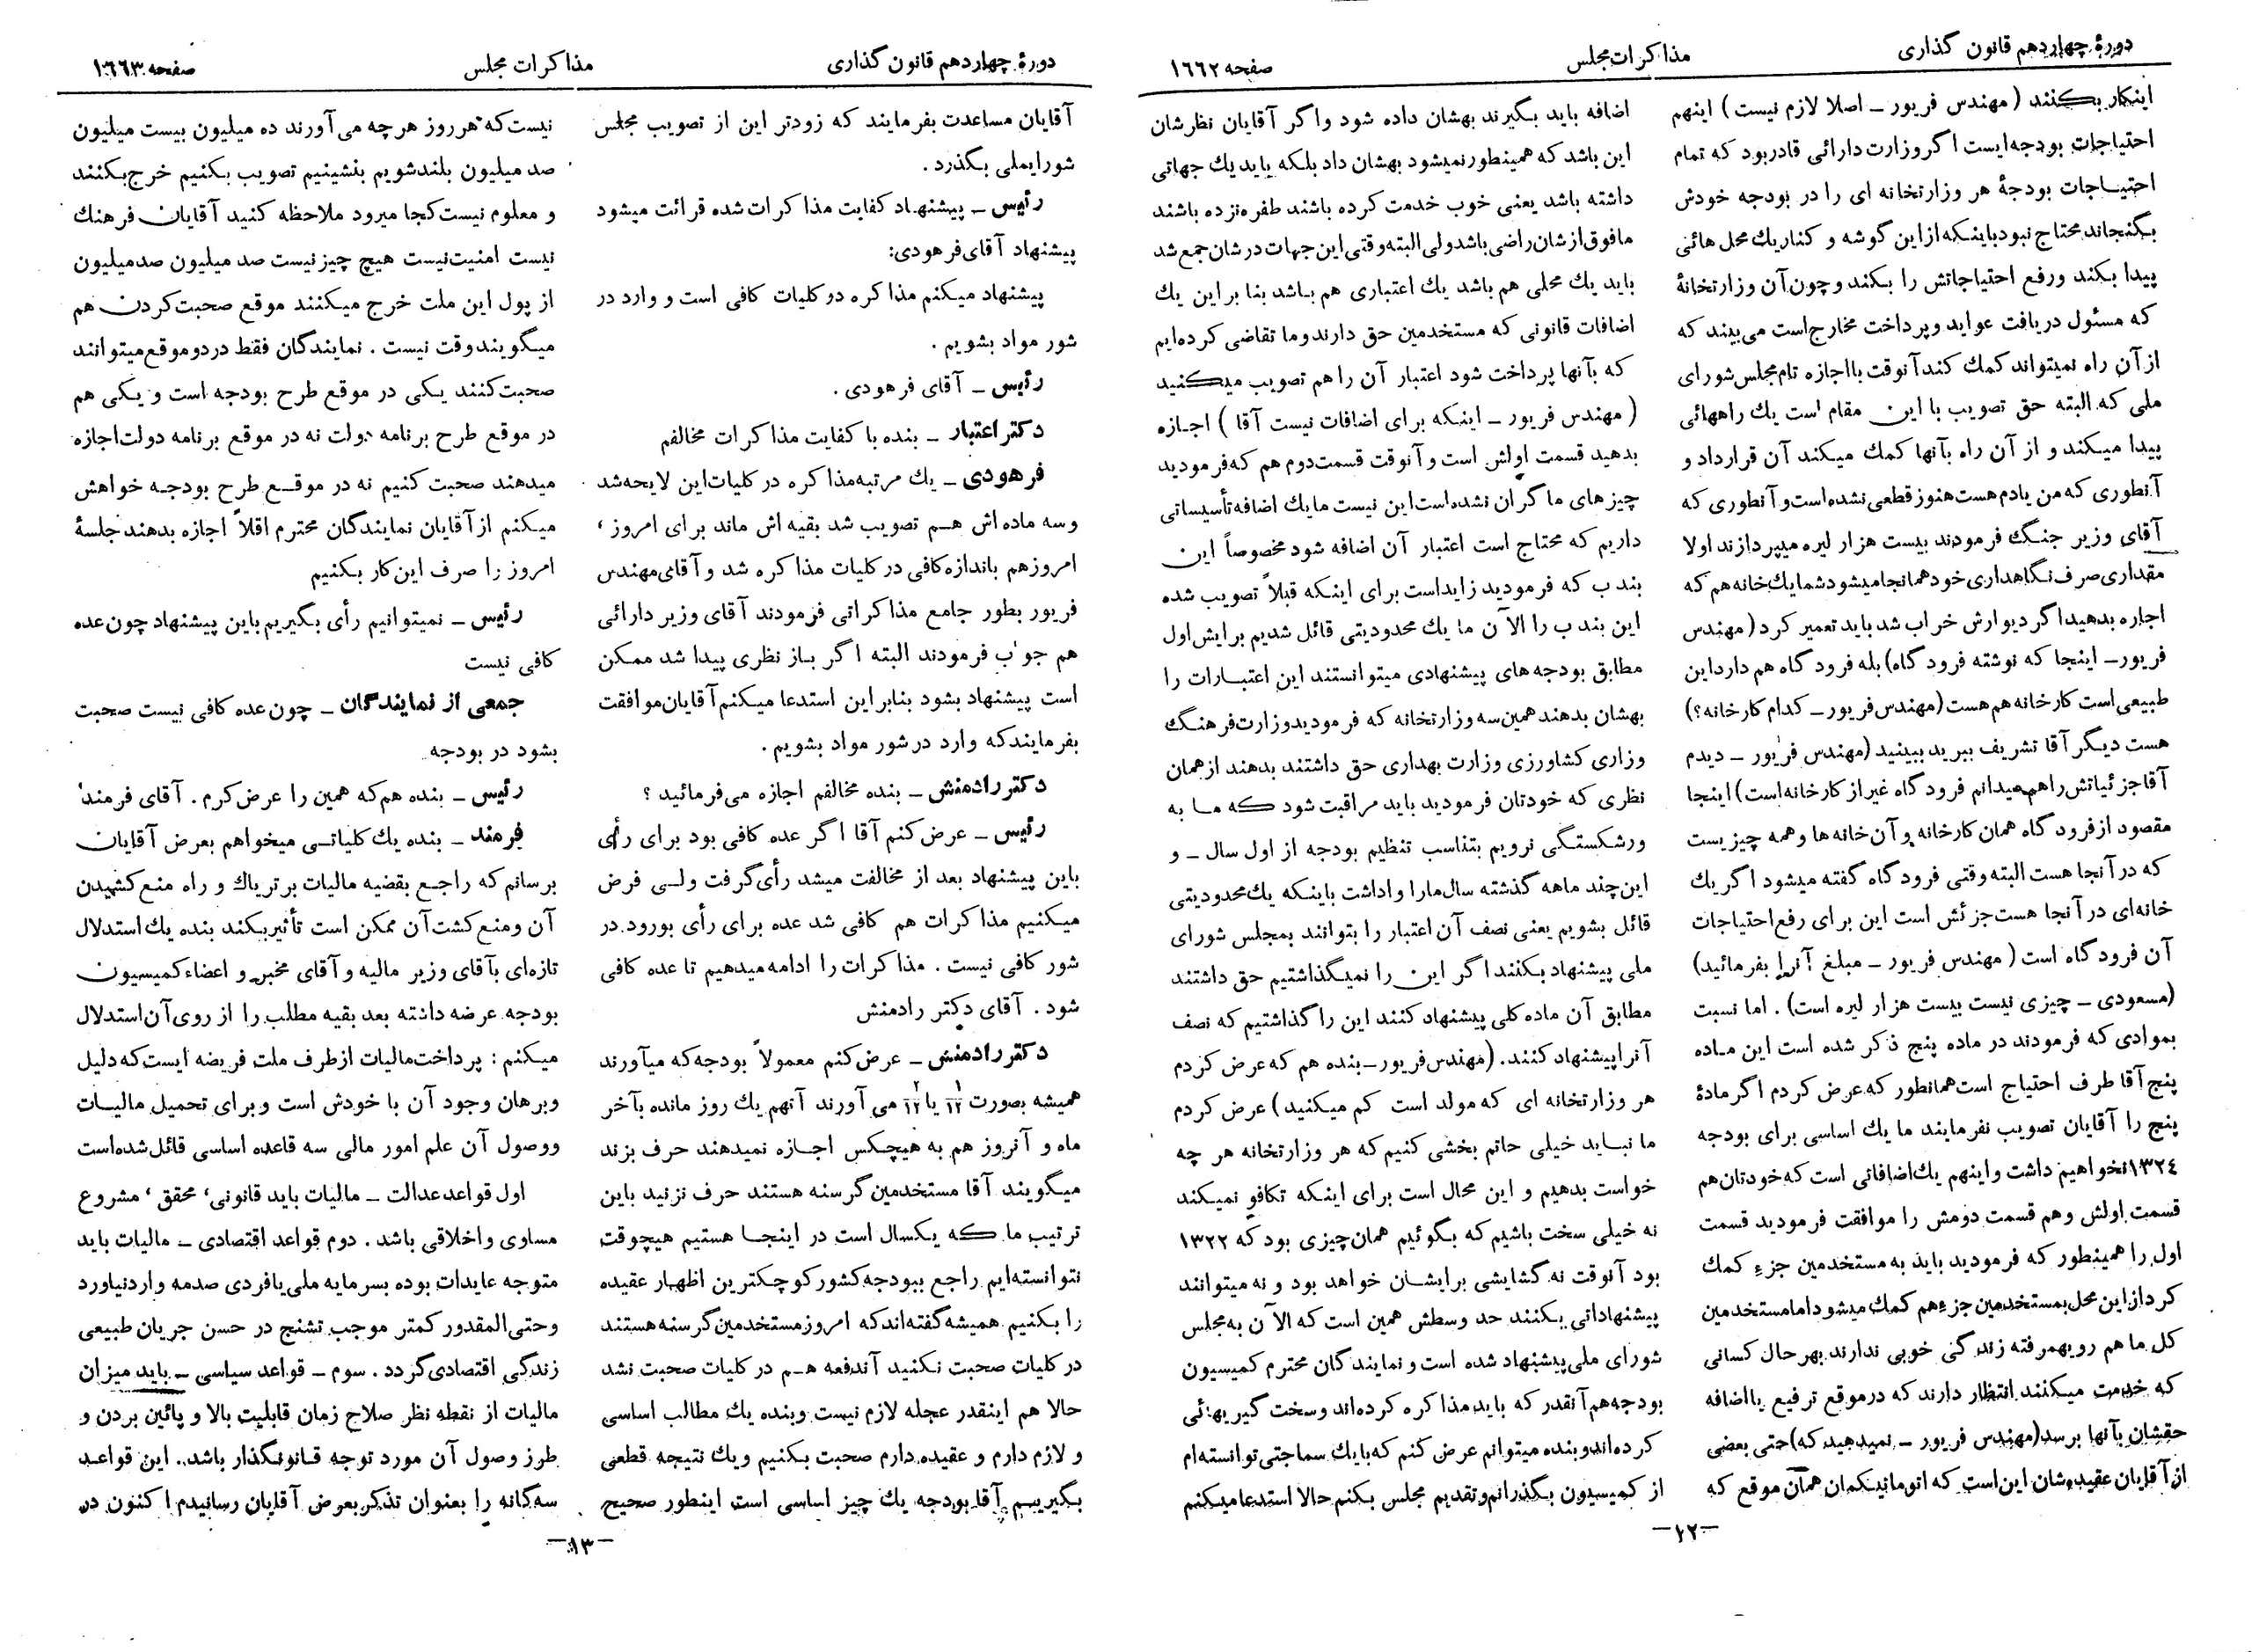 دورهٔ چهاردهم قانون گذاری
مذاکرات مجلس
صفحه ۱۶۶۲
اینکار بکنند ( مهندس فریور ــ اصلا لازم نیست ) اینهم
احتیاجات بودجه‌ایست اگر وزارت دارائی قادر بود که تمام
احتیاجات بودجهٔ هر وزارتخانه ای را در بودجه خودش
بگنجاند محتاج نبود باینکه از این گوشه و کنار یك محل هائی
پیدا بکند ورفع احتیاجاتش را بکند و چون آن وزارتخانهٔ
که مسئول دریافت عواید وپرداخت مخارج است می‌بیند که
از آن راه نمیتواند کمك کند آنوقت با اجازه تام مجلس شورای
ملی که البته حق تصویب با این مقام است یك راههائی
پیدا میکند و از آن راه بآنها کمك میکند آن قرارداد و
آنطوری که من یادم هست هنوز قطعی نشده است و آنطوری که
آقای وزیر جنگ فرمودند بیست هزار لیره میپردازند اولا
مقداری صرف نگاهداری خود همانجا میشود شما یك خانه هم که
اجاره بدهید اگر دیوارش خراب شد باید تعمیر کرد ( مهندس
فریور ــ اینجا که نوشته فرودگاه) بله فرودگاه هم دارد این
طبیعی است کارخانه هم هست (مهندس فریور ــ کدام کارخانه؟)
هست دیگر آقا تشریف ببرید ببینید (مهندس فریور ــ دیدم
آقا جزئیاتش راهم میدانم فرودگاه غیر از کارخانه است) اینجا
مقصود از فرودگاه همان کارخانه و آن خانه ها و همه چیزیست
که در آنجا هست البته وقتی فرودگاه گفته میشود اگر یك
خانه‌ای در آنجا هست جزئش است این برای رفع احتیاجات
آن فرودگاه است ( مهندس فریور ــ مبلغ آنرا بفرمائید)
(مسعودی ــ چیزی نیست بیست هزار لیره است) . اما نسبت
بموادی که فرمودند در ماده پنج ذکر شده است این ماده
پنج آقا طرف احتیاج است همانطور که عرض کردم اگر مادهٔ
پنج را آقایان تصویب نفرمایند ما یك اساسی برای بودجه
۱۳۲۴ نخواهیم داشت و اینهم یك اضافاتی است که خودتان هم
قسمت اولش وهم قسمت دومش را موافقت فرمودید قسمت
اول را همینطور که فرمودید باید به مستخدمین جزء کمك
کرد از این محل بمستخدمین جزء هم کمك میشود اما مستخدمین
کل ما هم رویهمرفته زندگی خوبی ندارند بهر حال کسانی
که خدمت میکنند انتظار دارند که درموقع ترفیع یا اضافه
حقشان بآنها برسد (مهندس فریور ــ نمیدهید که) حتی بعضی
از آقایان عقیده‌شان این است که اتوماتیکمان همان موقع که
اضافه باید بگیرند بهشان داده شود و اگر آقایان نظرشان
این باشد که همینطور نمیشود بهشان داد بلکه باید یك جهاتی
داشته باشد یعنی خوب خدمت کرده باشند طفره نزده باشند
مافوق ازشان راضی باشد ولی البته وقتی این جهات درشان جمع شد
باید یك محلی هم باشد یك اعتباری هم باشد بنا بر این یك
اضافات قانونی که مستخدمین حق دارند وما تقاضی کرده‌ایم
که بآنها پرداخت شود اعتبار آن را هم تصویب میکنید
( مهندس فریور ــ اینکه برای اضافات نیست آقا ) اجازه
بدهید قسمت اولش است و آنوقت قسمت دوم هم که فرمودید
چیزهای ما گران نشده است این نیست ما یك اضافه تأسیساتی
داریم که محتاج است اعتبار آن اضافه شود مخصوصاً این
بند ب که فرمودید زاید است برای اینکه قبلاً تصویب شده
این بند ب را الآن ما یك محدودیتی قائل شدیم برایش اول
مطابق بودجه های پیشنهادی میتوانستند این اعتبارات را
بهشان بدهند همین سه وزارتخانه که فرمودید وزارت فرهنگ
وزاری کشاورزی وزارت بهداری حق داشتند بدهند از همان
نظری که خودتان فرمودید باید مراقبت شود که ما به
ورشکستگی نرویم بتناسب تنظیم بودجه از اول سال ــ و
این چند ماهه گذشته سال مارا واداشت باینکه یك محدودیتی
قائل بشویم یعنی نصف آن اعتبار را بتوانند بمجلس شورای
ملی پیشنهاد بکنند اگر این را نمیگذاشتیم حق داشتند
مطابق آن ماده کلی پیشنهاد کنند این را گذاشتیم که نصف
آنرا پیشنهاد کنند. (مهندس فریور ــ بنده هم که عرض کردم
هر وزارتخانه ای که مولد است کم میکنید) عرض کردم
ما نباید خیلی حاتم بخشی کنیم که هر وزارتخانه هر چه
خواست بدهیم و این محال است برای اینکه تکافو نمیکند
نه خیلی سخت باشیم که بگوئیم همان چیزی بود که ۱۳۲۲
بود آنوقت نه گشایشی برایشان خواهد بود و نه میتوانند
پیشنهاداتی بکنند حد وسطش همین است که الآن به مجلس
شورای ملی پیشنهاد شده است و نمایندگان محترم کمیسیون
بودجه هم آنقدر که باید مذاکره کرده‌اند وسخت گیریهائی
کرده‌اند وبنده میتوانم عرض کنم که با یك سماجتی توانسته‌ام
از کمیسیون بگذرانم و تقدیم مجلس بکنم حالا استدعا میکنم
ــ ۱۲ ــ
دورهٔ چهاردهم قانون گذاری
مذاکرات مجلس
صفحه ۱۶۶۳
آقایان مساعدت بفرمایند که زودتر این از تصویب مجلس
شورایملی بگذرد .
رئیس ــ پیشنهاد کفایت مذاکرات شده قرائت میشود
پیشنهاد آقای فرهودی:
پیشنهاد میکنم مذاکره در کلیات کافی است و وارد در
شور مواد بشویم .
رئیس ــ آقای فرهودی .
دکتر اعتبار ــ بنده با کفایت مذاکرات مخالفم
فرهودی ــ یك مرتبه مذاکره در کلیات این لایحه شد
وسه ماده اش هم تصویب شد بقیه اش ماند برای امروز ،
امروزهم باندازه کافی در کلیات مذاکره شد و آقای مهندس
فریور بطور جامع مذاکراتی فرمودند آقای وزیر دارائی
هم جواب فرمودند البته اگر باز نظری پیدا شد ممکن
است پیشنهاد بشود بنابر این استدعا میکنم آقایان موافقت
بفرمایند که وارد در شور مواد بشویم .
دکتر رادمنش ــ بنده مخالفم اجازه می‌فرمائید ؟
رئیس ــ عرض کنم آقا اگر عده کافی بود برای رأی
باین پیشنهاد بعد از مخالفت میشد رأی گرفت ولی فرض
میکنیم مذاکرات هم کافی شد عده برای رأی بورود در
شور کافی نیست . مذاکرات را ادامه میدهیم تا عده کافی
شود . آقای دکتر رادمنش
دکتر رادمنش ــ عرض کنم معمولاً بودجه که میآورند
همیشه بصورت ۱/۱۲ یا ۲/۱۲ می آورند آنهم یك روز مانده بآخر
ماه و آنروز هم به هیچکس اجازه نمیدهند حرف بزند
میگویند آقا مستخدمین گرسنه هستند حرف نزنید باین
ترتیب ما که یکسال است در اینجا هستیم هیچوقت
نتوانسته‌ایم راجع ببودجه کشور کوچکترین اظهار عقیده
را بکنیم همیشه گفته‌اند که امروز مستخدمین گرسنه هستند
در کلیات صحبت نکنید آندفعه هم در کلیات صحبت نشد
حالا هم اینقدر عجله لازم نیست وبنده یك مطالب اساسی
و لازم دارم و عقیده دارم صحبت بکنیم ویك نتیجه قطعی
بگیریم آقا بودجه یك چیز اساسی است اینطور صحیح
نیست که هر روز هر چه می آورند ده میلیون بیست میلیون
صد میلیون بلند شویم بنشینیم تصویب بکنیم خرج بکنند
و معلوم نیست کجا میرود ملاحظه کنید آقایان فرهنك
نیست امنیت نیست هیچ چیز نیست صد میلیون صد میلیون
از پول این ملت خرج میکنند موقع صحبت کردن هم
میگویند وقت نیست . نمایندگان فقط در دو موقع میتوانند
صحبت کنند یکی در موقع طرح بودجه است و یکی هم
در موقع طرح برنامه دولت نه در موقع برنامه دولت اجازه
میدهند صحبت کنیم نه در موقع طرح بودجه خواهش
میکنم از آقایان نمایندگان محترم اقلاً اجازه بدهند جلسهٔ
امروز را صرف این کار بکنیم
رئیس ــ نمیتوانیم رأی بگیریم باین پیشنهاد چون عده
کافی نیست
جمعی از نمایندگان ــ چون عده کافی نیست صحبت
بشود در بودجه
رئیس ــ بنده هم که همین را عرض کرم . آقای فرمند
فرمند ــ بنده یك کلیاتی میخواهم بعرض آقایان
برسانم که راجع بقضیه مالیات بر تریاك و راه منع کشیدن
آن ومنع کشت آن ممکن است تأثیر بکند بنده یك استدلال
تازه‌ای بآقای وزیر مالیه و آقای مخبر و اعضاء کمیسیون
بودجه عرضه داشته بعد بقیه مطلب را از روی آن استدلال
میکنم : پرداخت مالیات از طرف ملت فریضه ایست که دلیل
وبرهان وجود آن با خودش است وبرای تحمیل مالیات
ووصول آن علم امور مالی سه قاعده اساسی قائل شده است
اول قواعد عدالت ــ مالیات باید قانونی، محقق ، مشروع
مساوی و اخلاقی باشد . دوم قواعد اقتصادی ــ مالیات باید
متوجه عایدات بوده بسرمایه ملی یا فردی صدمه وارد نیاورد
وحتی المقدور کمتر موجب تشنج در حسن جریان طبیعی
زندگی اقتصادی گردد . سوم ــ قواعد سیاسی ــ باید میزان
مالیات از نقطه نظر صلاح زمان قابلیت بالا و پائین بردن و
طرز وصول آن مورد توجه قانونگذار باشد.. این قواعد
سه‌گانه را بعنوان تذکر بعرض آقایان رسانیدم اکنون در
ــ ۱۳ ــ